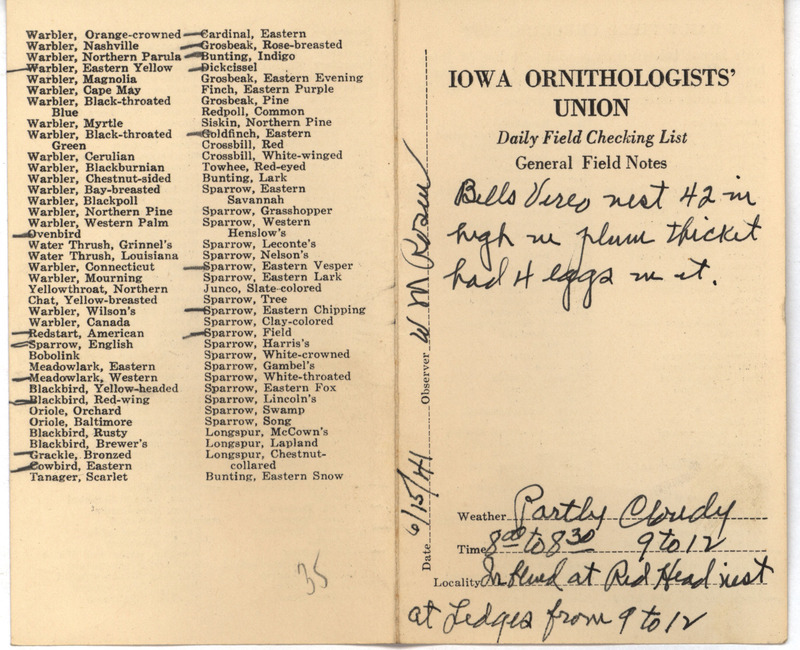 Warbler, Orange-crowned
Warbler, Nashville
Warbler, Northern Parula
Warbler, Eastern Yellow
Warbler, Magnolia
Warbler, Cape May
Warbler, Black-throated
Blue
Warbler, Myrtle
Warbler, Black-throated
Green
Warbler, Cerulian
Warbler, Blackburnian
Warbler, Chestnut-sided
Warbler, Bay-breasted
Warbler, Blackpoll
Warbler, Northern Pine
Warbler, Western Palm
Ovenbird
Water Thrush, Grinnel's
Water Thrush, Louisiana
Warbler, Connecticut
Warbler, Mourning
Yellowthroat, Northern
Chat, Yellow-breasted
Warbler, Wilson's
Warbler, Canada
Redstart, American
Sparrow, English
Bobolink
Meadowlark, Eastern
Meadowlark, Western
Blackbird, Yellow-headed
Blackbird, Red-wing
Oriole, Orchard
Oriole, Baltimore
Blackbird, Rusty
Blackbird, Brewer's
Grackle, Bronzed
Cowbird, Eastern
Tanager, Scarlet
Cardinal, Eastern
Grosbeak, Rose-breasted
Bunting, Indigo
Dickcissel
Grosbeak, Eastern Evening
Finch, Eastern Purple
Grosbeak, Pine
Redpoll, Common
Siskin, Northern Pine
Goldfinch, Eastern
Crossbill, Red
Crossbill, White-winged
Towhee, Red-eyed
Bunting, Lark
Sparrow, Eastern
Savannah
Sparrow, Grasshopper
Sparrow, Western
Henslow's
Sparrow, Leconte's
Sparrow, Nelson's
Sparrow, Eastern Vesper
Sparrow, Eastern Lark
Junco, Slate-colored
Sparrow, Tree
Sparrow, Eastern Chipping
Sparrow, Clay-colored
Sparrow, Field
Sparrow, Harris's
Sparrow, White-crowned
Sparrow, Gambel's
Sparrow, White-throated
Sparrow, Eastern Fox
Sparrow, Lincoln's
Sparrow, Swamp
Sparrow, Song
Longspur, McCown's
Longspur, Lapland
Longspur, Chestnut-
collared
Bunting, Eastern Snow
35
Date 6/15/41 Observer W M Rosen
IOWA ORNITHOLOGISTS'
UNION
Daily Field Checking List
General Field Notes
Bells Vireo nest 42 in
high in plum thicket
had 4 eggs in it.
Weather Partly Cloudy
Time 8 00 to 8 30 9 to 12
Locality In blind at Red Head nest
at Ledges from 9 to 12